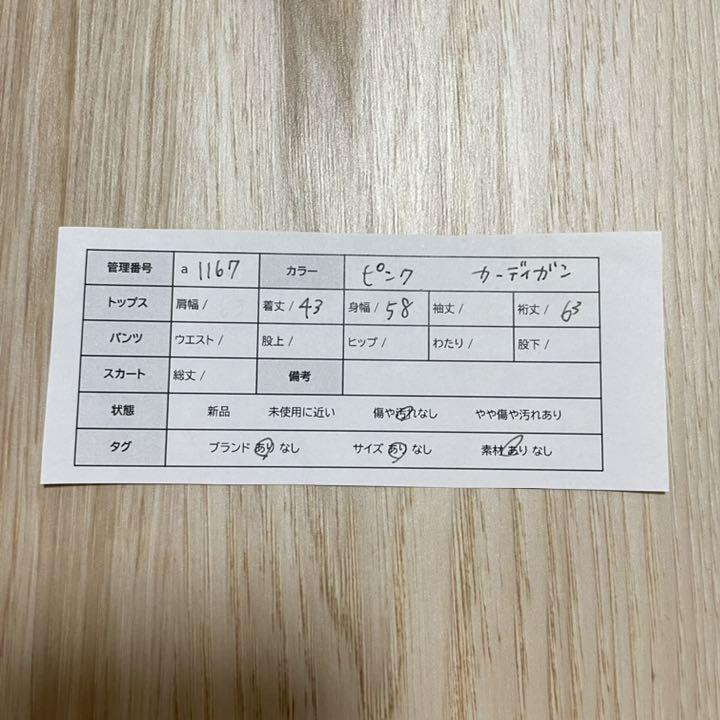 管理番号 a 1167 カラー ピンク カーディガン
トップス 肩幅 / 着丈 / 43 身幅 / 58 袖丈 / 裄丈 / 63
パンツ ウエスト / 股上 / ヒップ / わたり / 股下 /
スカート 総丈 / 備考
状態 新品 未使用に近い 傷や汚れなし やや傷や汚れあり
タグ ブランド あり なし サイズ あり なし 素材 あり なし